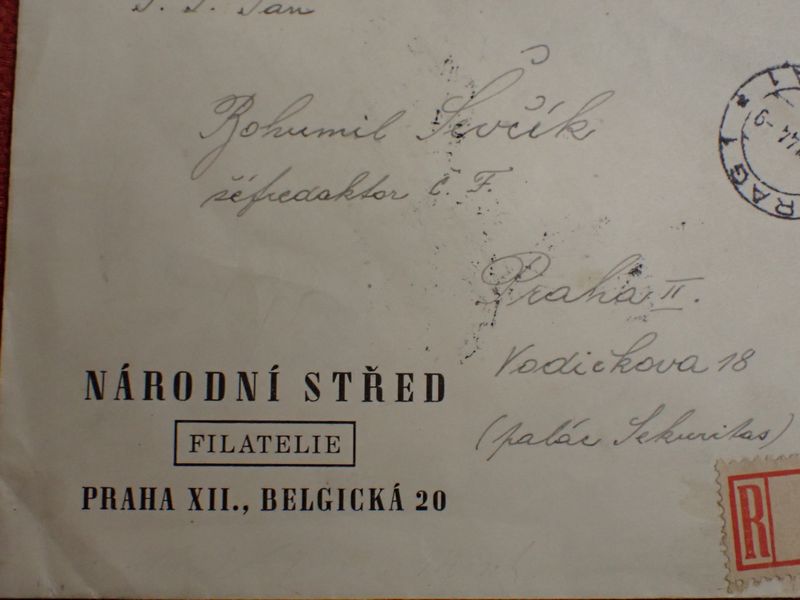 Pan
Bohumil Ševčík
šéfredaktor č. F.
Praha II.
Vodičkova 18
(palác Sekuritas)
NÁRODNÍ STŘED
FILATELIE
PRAHA XII., BELGICKÁ 20
RAG 1
44-9
R